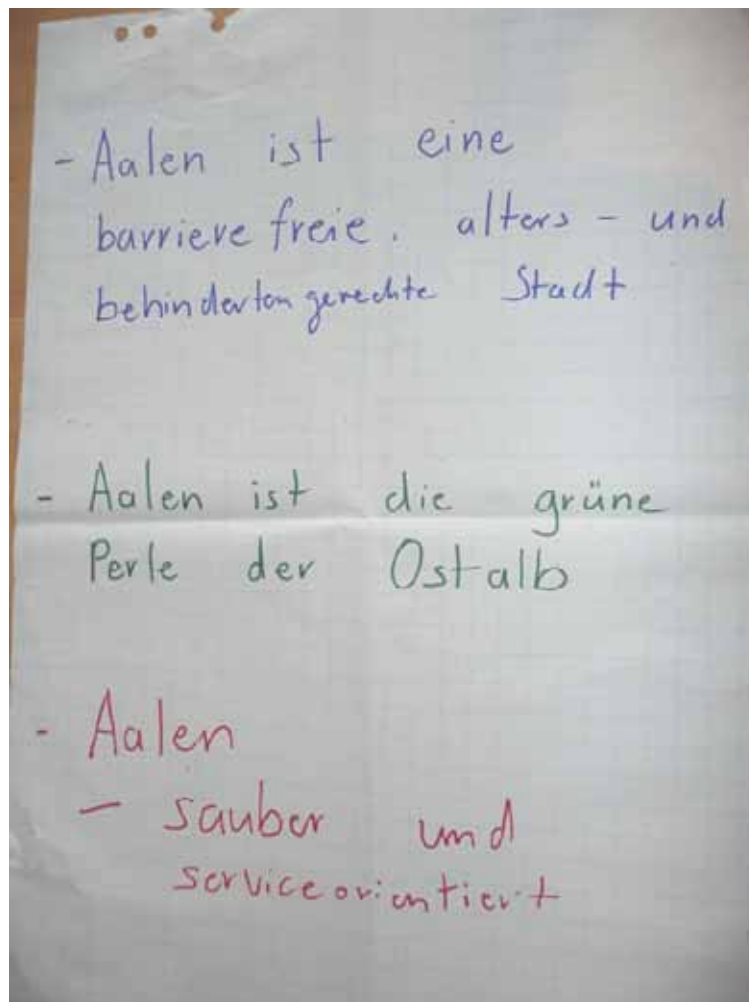 - Aalen ist eine
barrierefreie, alters - und
behindertengerechte Stadt
- Aalen ist die grüne
Perle der Ostalb
- Aalen
- sauber und
serviceorientiert